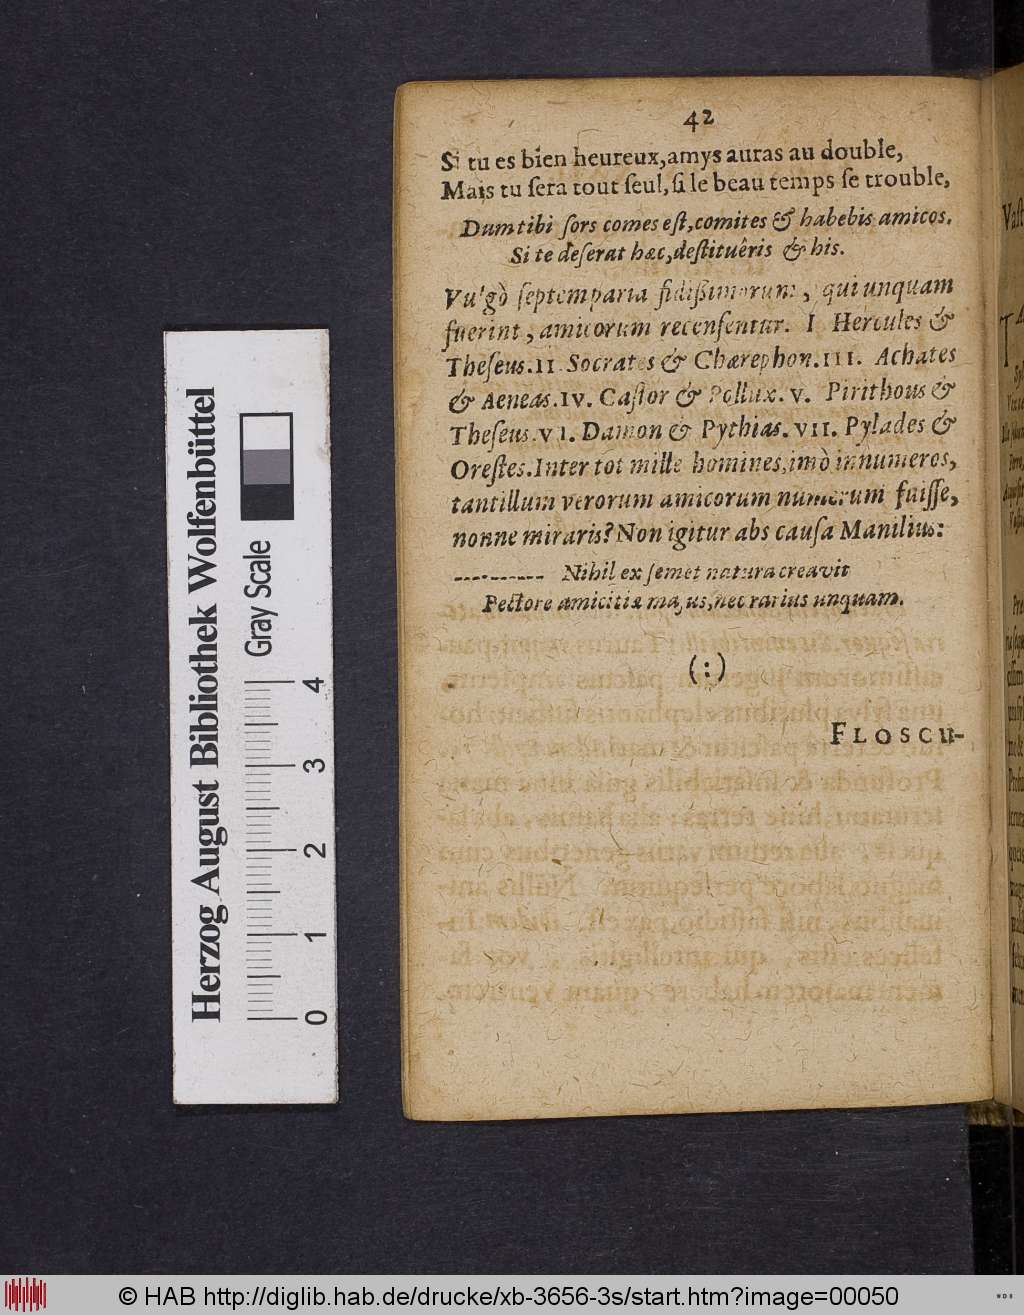 42
Si tu es bien heureux, amys auras au double,
Mais tu ſera tout ſeul, ſi le beau temps ſe trouble,
Dum tibi ſors comes eſt, comites & habebis amicos.
Si te deſerat hæc, deſtituêris & his.
Vulgò ſeptem paria fidißimorum, qui unquam
fuerint, amicorum recenſentur. I Hercules &
Theſeus. II Socrates & Chærephon. III. Achates
& Aeneas. IV. Caſtor & Pollux. V. Pirithous &
Theſeus. VI. Damon & Pythias. VII. Pylades &
Oreſtes. Inter tot mille homines, imò innumeros,
tantillum verorum amicorum numerum fuiſſe,
nonne miraris? Non igitur abs cauſa Manilius:
---------- Nihil ex ſemet natura creavit
Pectore amicitiæ majus, nec rarius unquam.
(:)
FLOSCU-
Herzog August Bibliothek Wolfenbüttel
Gray Scale
0 1 2 3 4
© HAB http://diglib.hab.de/drucke/xb-3656-3s/start.htm?image=00050